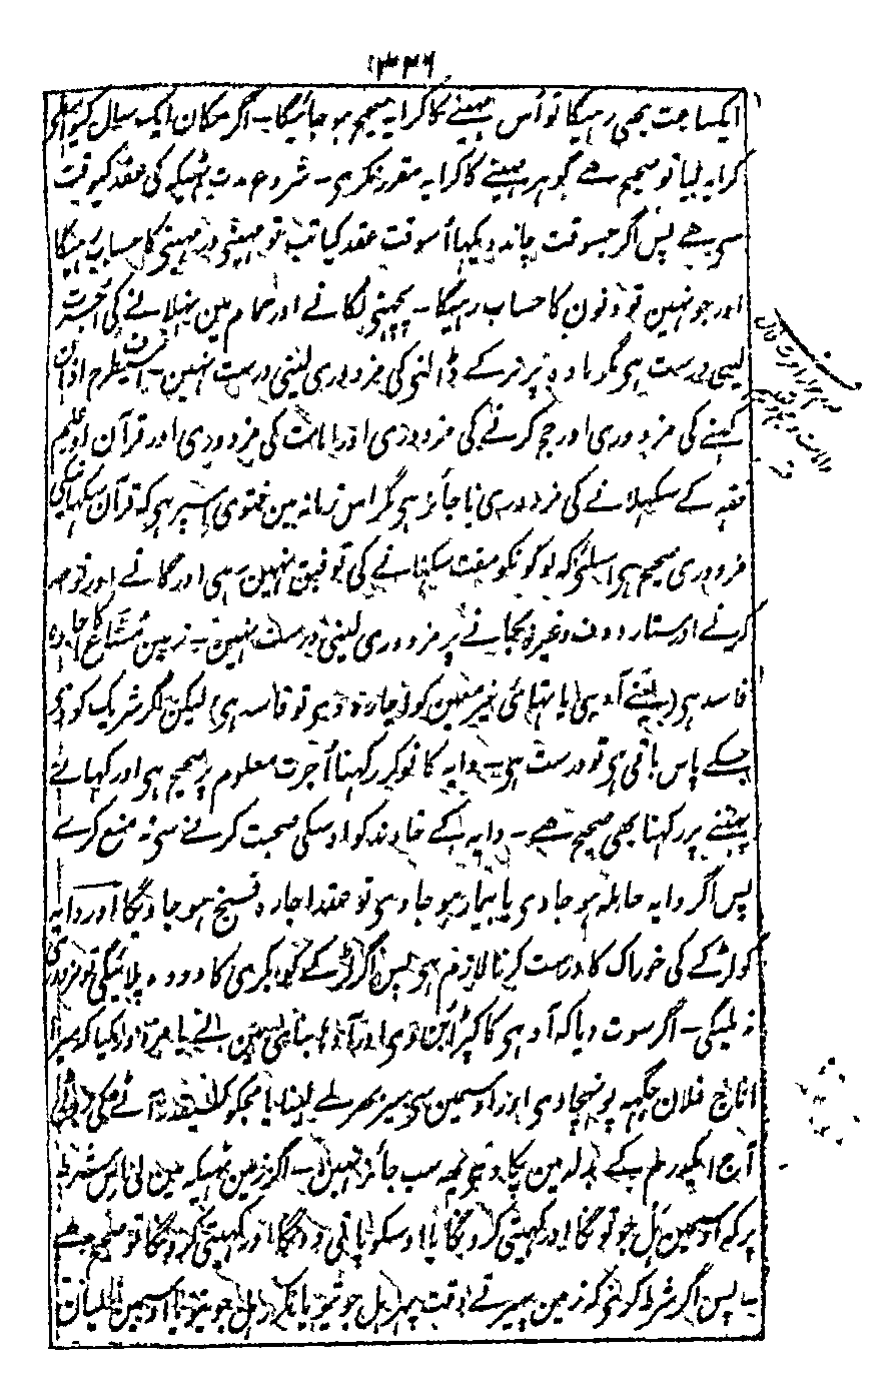 ۳۳۶
ایکساعت بھی رہیگا تو اُس مہینے کا کرایہ صحیح ہو جائیگا۔ اگر مکان ایک سال کیواسطے
کرایہ لیا تو صحیح ہے گو ہر مہینے کا کرایہ مقرر نکری۔ شروع مدت ٹھیکہ کی عقد کیوقت
سی ہے پس اگر جسوقت چاند دیکھا اُسوقت عقد کیا تب تو مہینی در مہینی کا حساب رہیگا
اور جو نہین تو دنون کا حساب رہیگا۔ پچھنی لگانے اور حمام مین نہلانے کی اُجرت
لینی درست ہی مگر مادہ پر نر کے ڈالنی کی مزدوری لینی درست نہین۔ اسیطرح اذان
کہنے کی مزدوری اور حج کرنے کی مزدوری اور امامت کی مزدوری اور قرآن اور علم
فقہ کے سکہلانے کی مزدوری ناجائز ہی مگر اس زمانہ مین فتوی اسپر ہی کہ قرآن سکہانیکی
مزدوری صحیح ہی اسلئی کہ لوگونکو مفت سکہانے کی توفیق نہین رہی اور گانے اور نوحہ
کرنے اور ستار و دف وغیرہ بجانے پر مزدوری لینی درست نہین۔ زمین مشاع کا اجارہ
فاسد ہی (یعنے آدہی یا تہائی غیر معین کو اجارہ دی تو فاسد ہی) لیکن اگر شریک کو دی
جسکے پاس باقی ہی تو درست ہی۔ دایہ کا نوکر رکہنا اُجرت معلوم پر صحیح ہی اور کہانے
پہننے پر رکہنا بھی صحیح ہے۔ دایہ کے خاوند کو اوسکی صحبت کرنے سی نہ منع کرے
پس اگر دایہ حاملہ ہو جاوی یا بیمار ہو جاوی تو عقد اجارہ فسخ ہو جاویگا اور دایہ
کو لڑکے کی خوراک کا درست کرنا لازم ہی پس اگر لڑکے کو بکری کا دودہ پلائیگی تو مزدوری
نہ ملیگی۔ اگر سوت دیا کہ آدہی کا کپڑا بُن دی اور آدہا بنائی مین لے یا مزدور کیا کہ میرا
اناج فلان جگہہ پونہچادی اور اوسمین سی سیر بھر لے لینا یا مجکو اسقدر آٹے کی روٹی
آج ایکدرہم کے بدلہ مین پکا دی تو یہ سب جائز نہین۔ اگر زمین ٹھیکہ مین لی اس شرط
پر کہ اوسمین ہل جوتونگا اور کہیتی کرونگا یا اوسکو پانی دونگا اور کہیتی کرونگا تو صحیح ہے
پس اگر شرط کرلی کہ زمین پہیرتے وقت پہر ہل جوت یا نکر ہل یا اوسمین نالیان